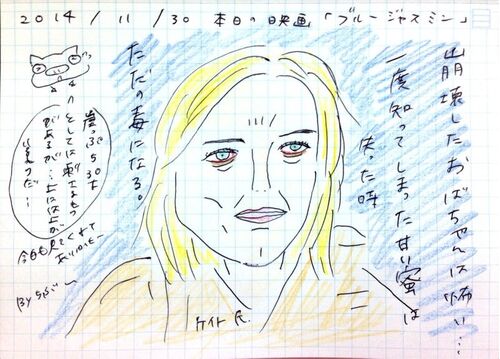 2014/11/30 本日の映画「ブルージャスミン」
崩壊したおばちゃんは怖い…
一度知ってしまった甘い蜜は
失った時
ただの毒になる。
崖っぷち30女
としては刺さるもの
があるが…上には上が
今日も見てくれて
ありがとー
By
ケイト氏.